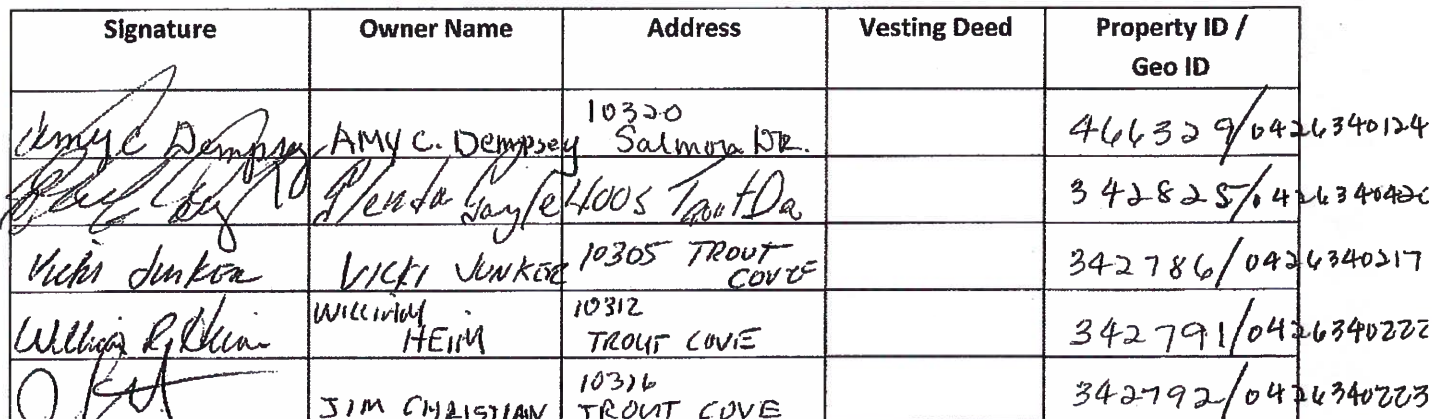 Signature Owner Name Address Vesting Deed Property ID /
Geo ID
10320
Amy C Dempsey AMY C. Dempsey Salmon DR. 466329/0426340124
Glenda Gayle 4005 Trout Dr 342825/042634042
Vicki Junker VICKI JUNKER 10305 TROUT 342786/0426340217
COVE
William 10312
William R. Heim HEIM TROUT COVE 342791/0426340222
10316
JIM CHRISTIAN TROUT COVE 342792/0426340223